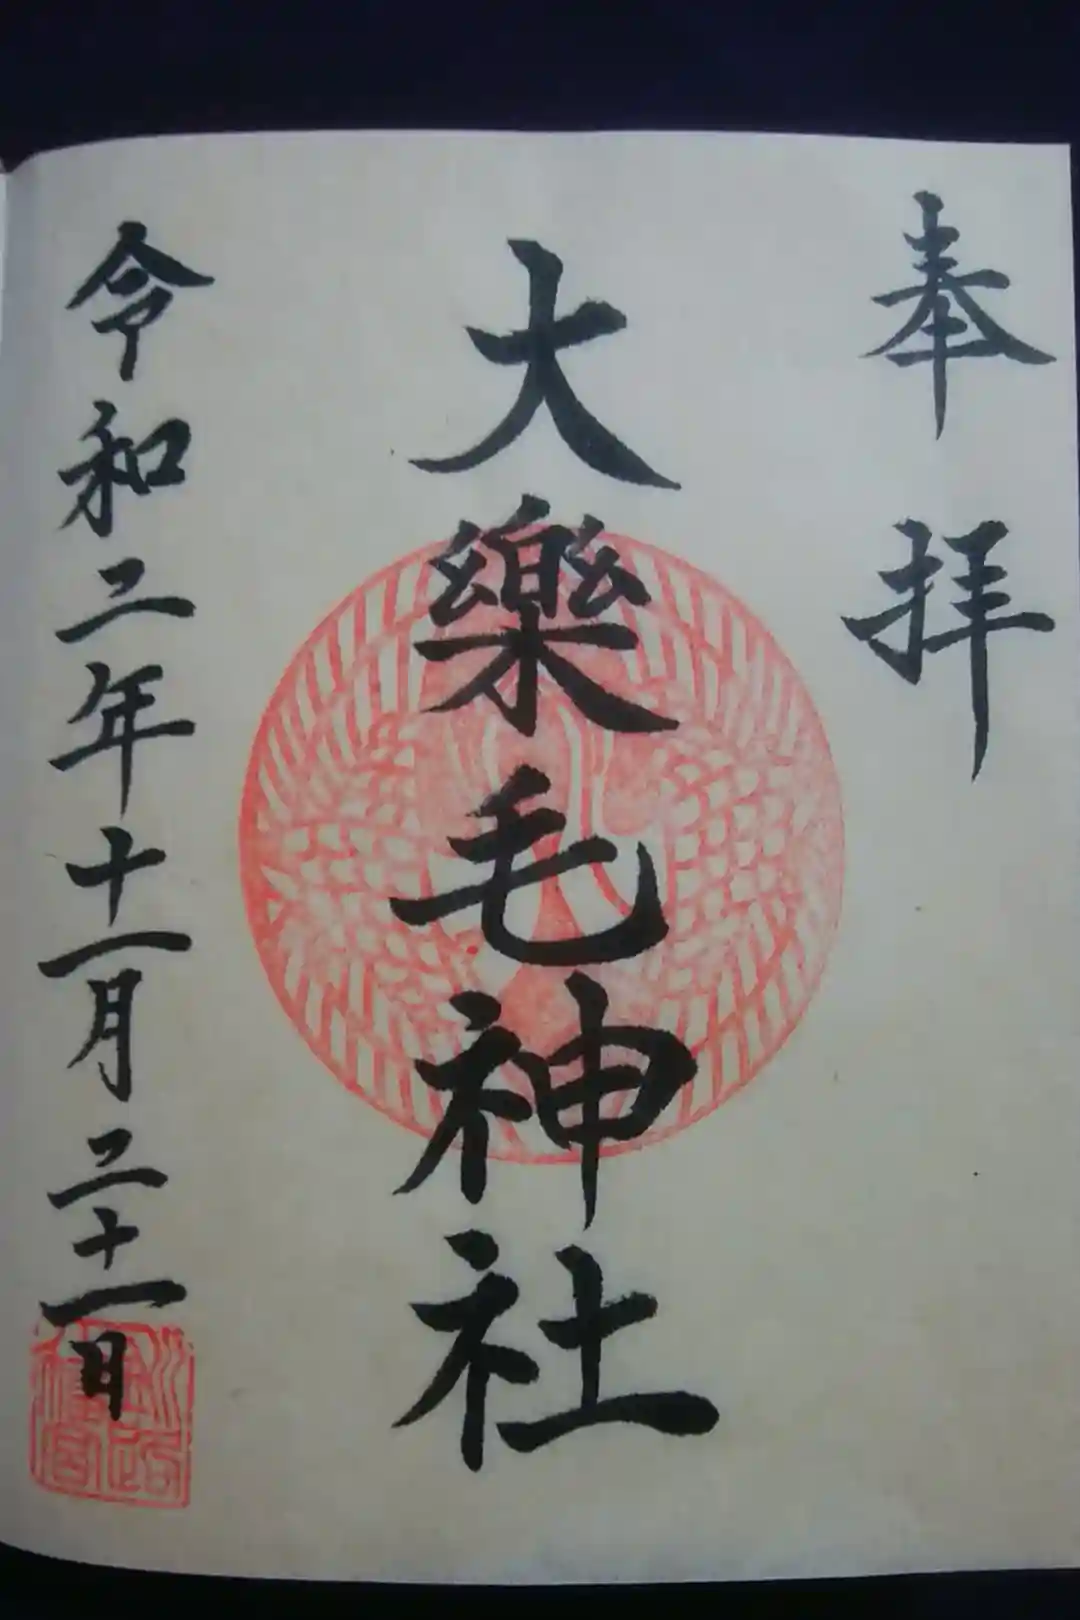 奉拝
大樂毛神社
令和二年十一月二十一日